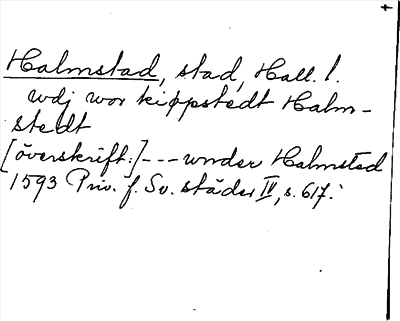 Halmstad, stad, Hall. l.
wdj wor kiøpstedt Halm-
stedt
[överskrift:] --- wnder Halmsted
1593 Priv. f. Sv. städer IV, s. 617.